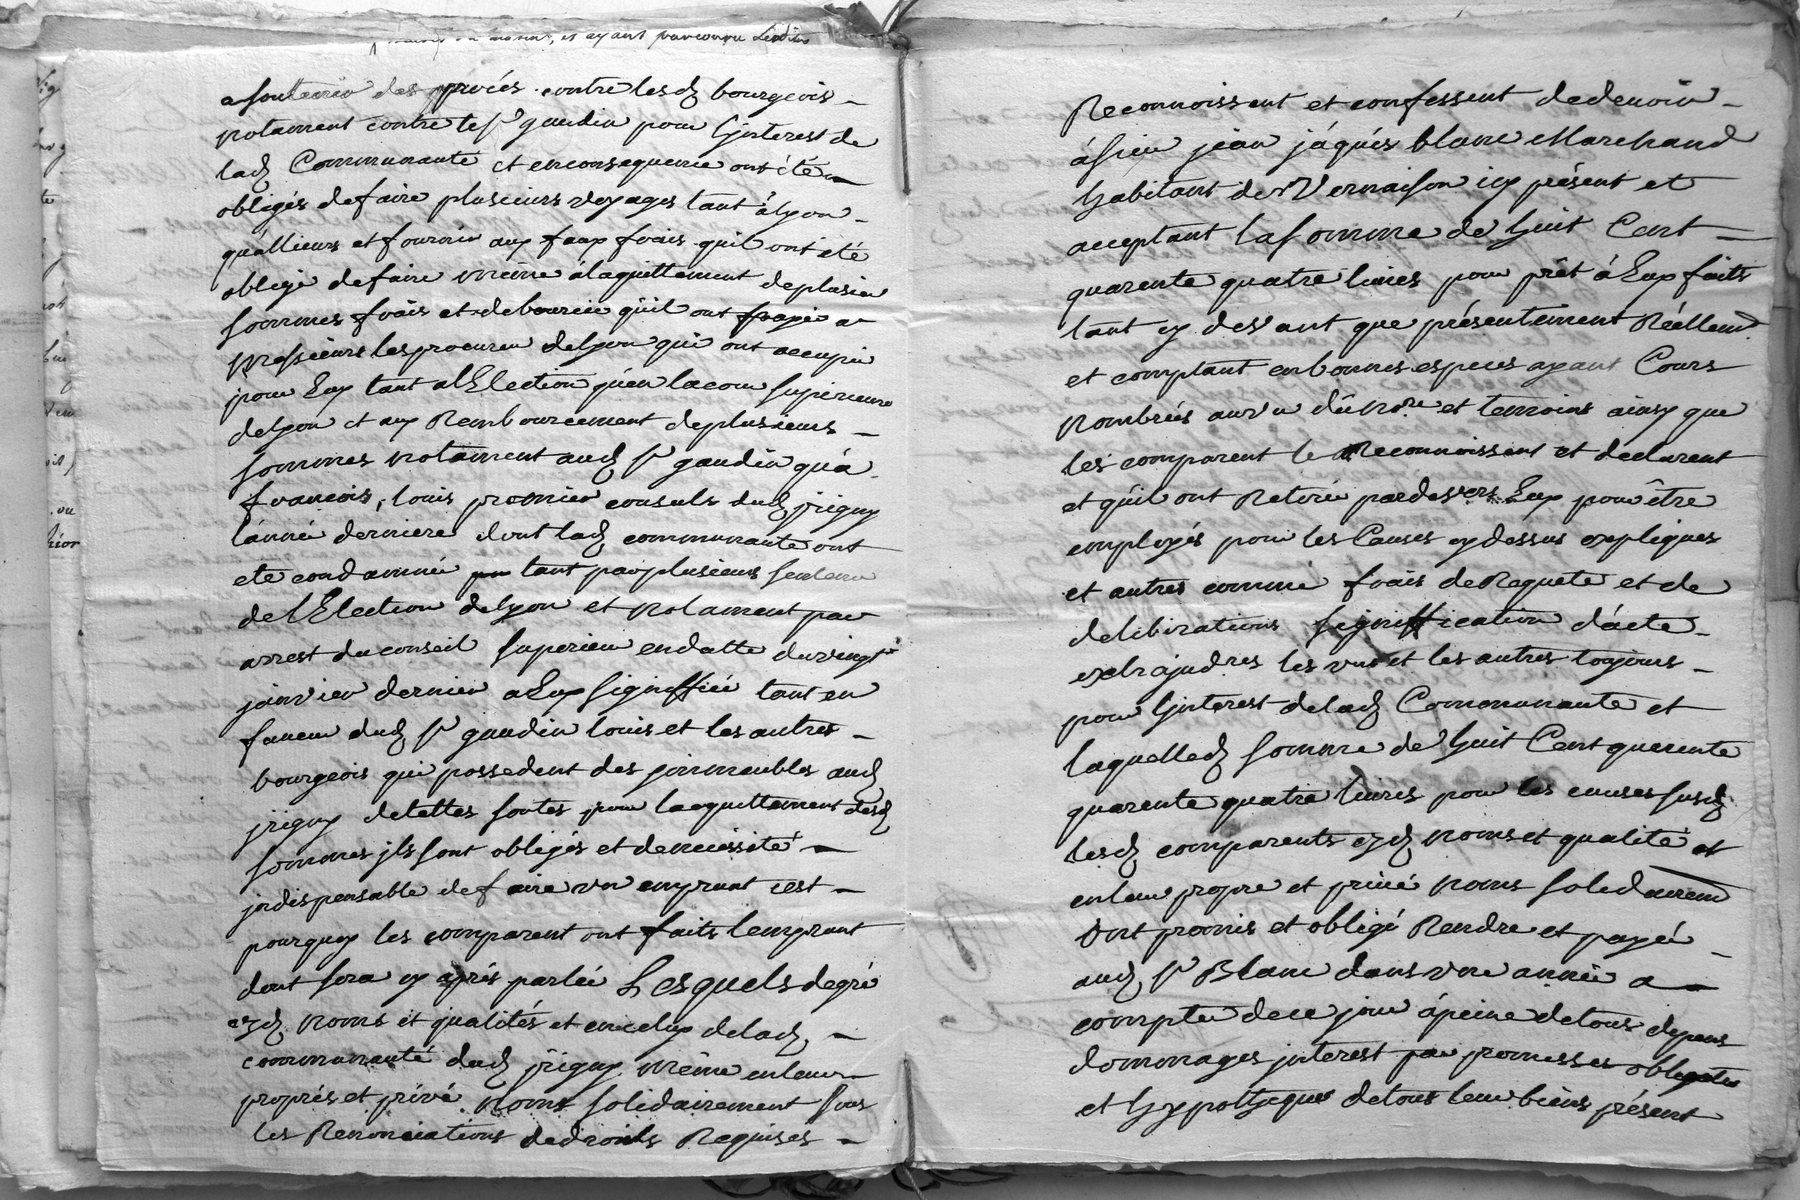 et ayant parcouru
a soutenir des procés contre lesd bourgeois
notament contre le sr gaudin pour Ljnterest de
lad Communauté et enconsequence ont été
obligés defaire plusieurs voyages tant àlyon
quállieurs et fournir aux faux frais quil ont eté
obligé defaire même álaquittement deplusieu
sommes frais et debource quil ont payé a
Messieurs lesprocureu delyon qui ont occupée
pour Eux tant alElection quen lacour superieure
delyon et aux Rembourcement deplusieurs
sommes notament aud sr gaudin quá
francois, louis premier consuls dud jrigny
lánné derniere dont lad communauté ont
eté condamné tant parplusieurs sentence
de lElection delyon et notament par
arrest duconseil superieu endatte duvingt
janvier dernier a Eux signiffié tant en
faveur dud sr gaudin louis et les autres
bourgeois qui possedent des jmmeubles aud
jrigny detattes sortes pour lacquittement desd
sommes jls sont obligés et denecéssité
jndispensable defaire un emprunt cest
pourquoy les comparent ont faits lemprunt
dont sera cy aprés parlée Lesquels degré
ezd noms et qualités et enceluy delad
communauté dud jrigny même enleur
proprés et privé noms solidairement sous
les Renonciations dedroits Requises
Reconnoissent et confessent dedevoir
ásieur jean jáqués blanc Marchand
habitant de Vernaison icy présent et
acceptant lasomme de huit Cent
quarente quatre livres pour prêt à Eux faits
tant cy devant que présentement Réellemt
et comptant enbonnes especes ayant Cours
nombrées auvu dûNore et temoins ainsy que
les comparent le Reconnoissent et declarent
et quil ont Retirée pardevers Eux pour être
employés pour les Causes cydessus expliques
et autres comme frais deRaquete et de
deliberations signiffication dácte
extrajudres les uns et les autres toujours
pour Ljnterest delad Communauté et
laquelled somme de huit Cent quarente
quarente quatre livres pour les causes susd
lesd comparents ezd noms et qualité et
enleur propre et privé noms solidairem
ont promis et obligé Rendre et payé
aud sr Blanc dans une année a
compter dece jour ápeine detous depens
dommages jnterest par promesses obligation
et hypotheque detous leur biens présent